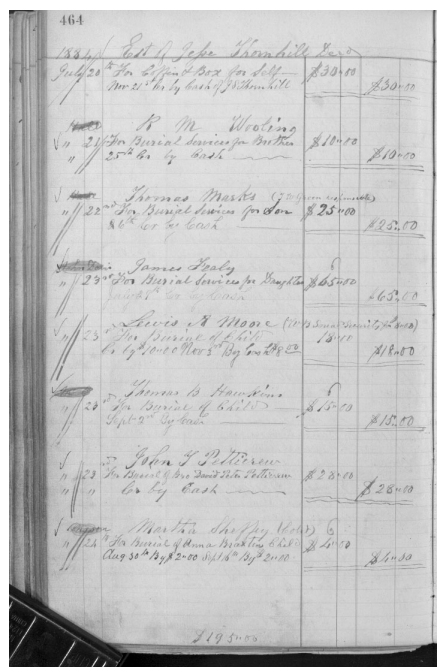 464
1884 Est of Jesse Thornhill Decd
July 20th For Coffin & Box for Self $30.00
Nov 21st Cr by Cash of J Thornhill $30.00
R M Wooling
" 21st For Burial Services for Brother $10.00
25th Cr by Cash $10.00
Thomas Marks
" 22nd For Burial Services for Son $25.00
Cr by Cash $25.00
James Fealy
" 23rd For Burial Services for Daughter $65.00
Cr by Cash $65.00
Lewis A Moore
" 23 For Burial of Child 18.00
Cr by 10.00 Nov 3rd By Cash $8.00 $18.00
Thomas B Hawkins
" 23 For Burial of Child $15.00
Sept 2nd By Cash $15.00
John T Petticrew
" 23 For Burial of David Petticrew $28.00
" " Cr by Cash $28.00
Martha Shelby
" 24th For Burial of Anna Child $4.00
Aug 30th By $2.00 Sept 6th By $2.00 $4.00
$195.00